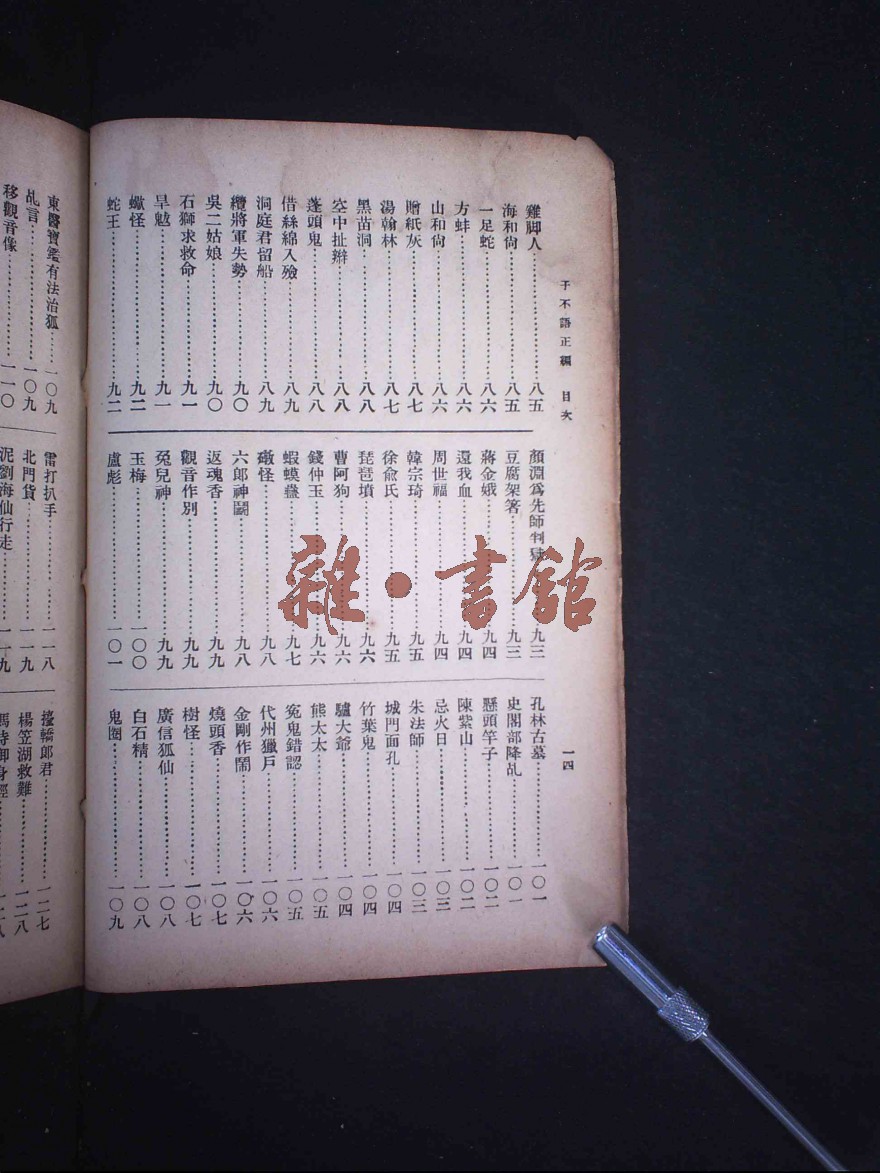 子不語正編　目次
一四
雞脚人……八五
海和尙……八五
一足蛇……八六
方蚌……八六
山和尙……八六
贈紙灰……八七
湯翰林……八七
黑苗洞……八八
空中扯辮……八八
蓬頭鬼……八八
借絲綿入殮……八九
洞庭君留船……八九
纜將軍失勢……九〇
吳二姑娘……九〇
石獅求救命……九一
旱魃……九一
蠍怪……九二
蛇王……九二
顏淵爲先師判獄……九三
豆腐架箸……九三
蔣金娥……九四
還我血……九四
周世福……九四
韓宗琦……九五
徐俞氏……九五
琵琶墳……九六
曹阿狗……九六
錢仲玉……九六
蝦蟆蠱……九七
礅怪……九八
六郎神鬭……九八
返魂香……九九
觀音作別……九九
兔兒神……九九
玉梅……一〇〇
盧彪……一〇一
孔林古墓……一〇一
史閣部降乩……一〇一
懸頭竿子……一〇二
陳紫山……一〇二
忌火日……一〇三
朱法師……一〇三
城門面孔……一〇四
竹葉鬼……一〇四
驢大爺……一〇四
熊太太……一〇五
冤鬼錯認……一〇五
代州獵戶……一〇六
金剛作鬧……一〇六
燒頭香……一〇七
樹怪……一〇七
廣信狐仙……一〇八
白石精……一〇八
鬼圈……一〇九
東醫寶鑑有法治狐……一〇九
乩言……一〇九
移觀音像……一一〇
雷打扒手……一一八
北門貨……一一九
泥劉海仙行走……一一九
擡轎郎君……一二七
楊笠湖救難……一二八
馮侍御身輕……一二八
雜·書館